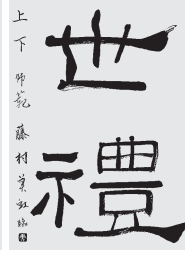 世禮
上下 師範 藤村美虹臨